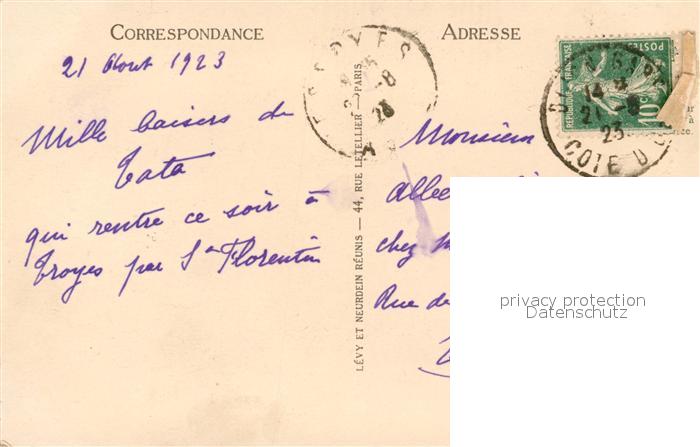 CORRESPONDANCE
ADRESSE
21 Aout 1923
Mille baisers de
Tata
qui rentre ce soir à
Troyes par St Florentin
LÉVY ET NEURDEIN RÉUNIS — 44, RUE LETELLIER — PARIS
TROYES
23
RÉPUBLIQUE FRANÇAISE
POSTES
10
21-8
23
COTE D'OR
Monsieur
chez
Rue de
privacy protection
Datenschutz